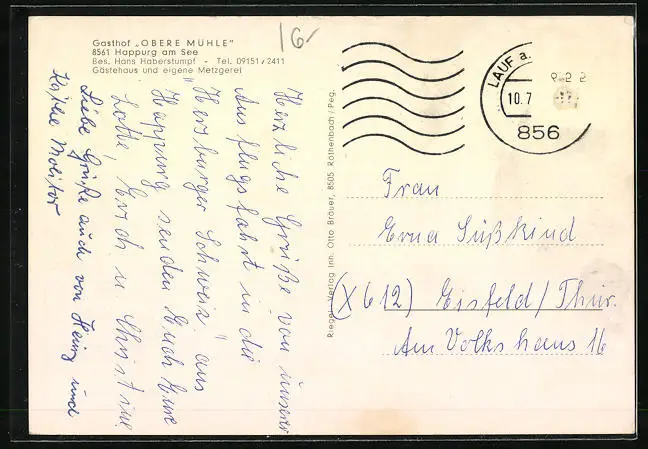 Gasthof „OBERE MÜHLE"
8561 Happurg am See
Bes. Hans Haberstumpf - Tel. 09151/2411
Gästehaus und eigene Metzgerei
16-
Herzliche Grüße von unserer
Ausflugsfahrt in die
"Hersburger Schweiz" aus
Happurg senden Euch Eure
Lotte, Erich u. Christine
Liebe Grüße auch von Heinz und
Käthe Molitor
Riegel Verlag Inh. Otto Bräuer, 8505 Röthenbach/Peg.
LAUF a.
10.7
856
Frau
Erna Süßkind
(X612) Eisfeld/Thür.
Am Volkshaus 16